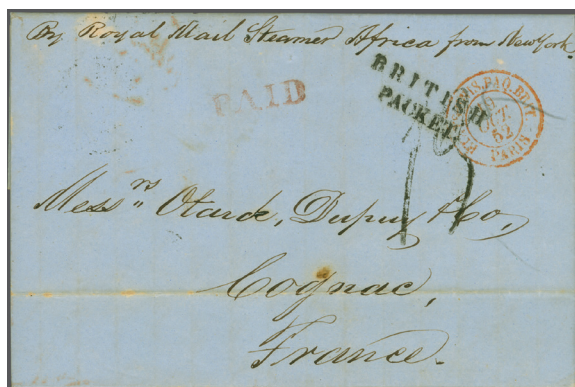 By Royal Mail Steamer Africa from New York.
PAID
BRITISH
PACKET.
PAQ. BRIT.
OCT.
52
PARIS
Mess.rs Otard, Dupuy & Co,
Cognac,
France.